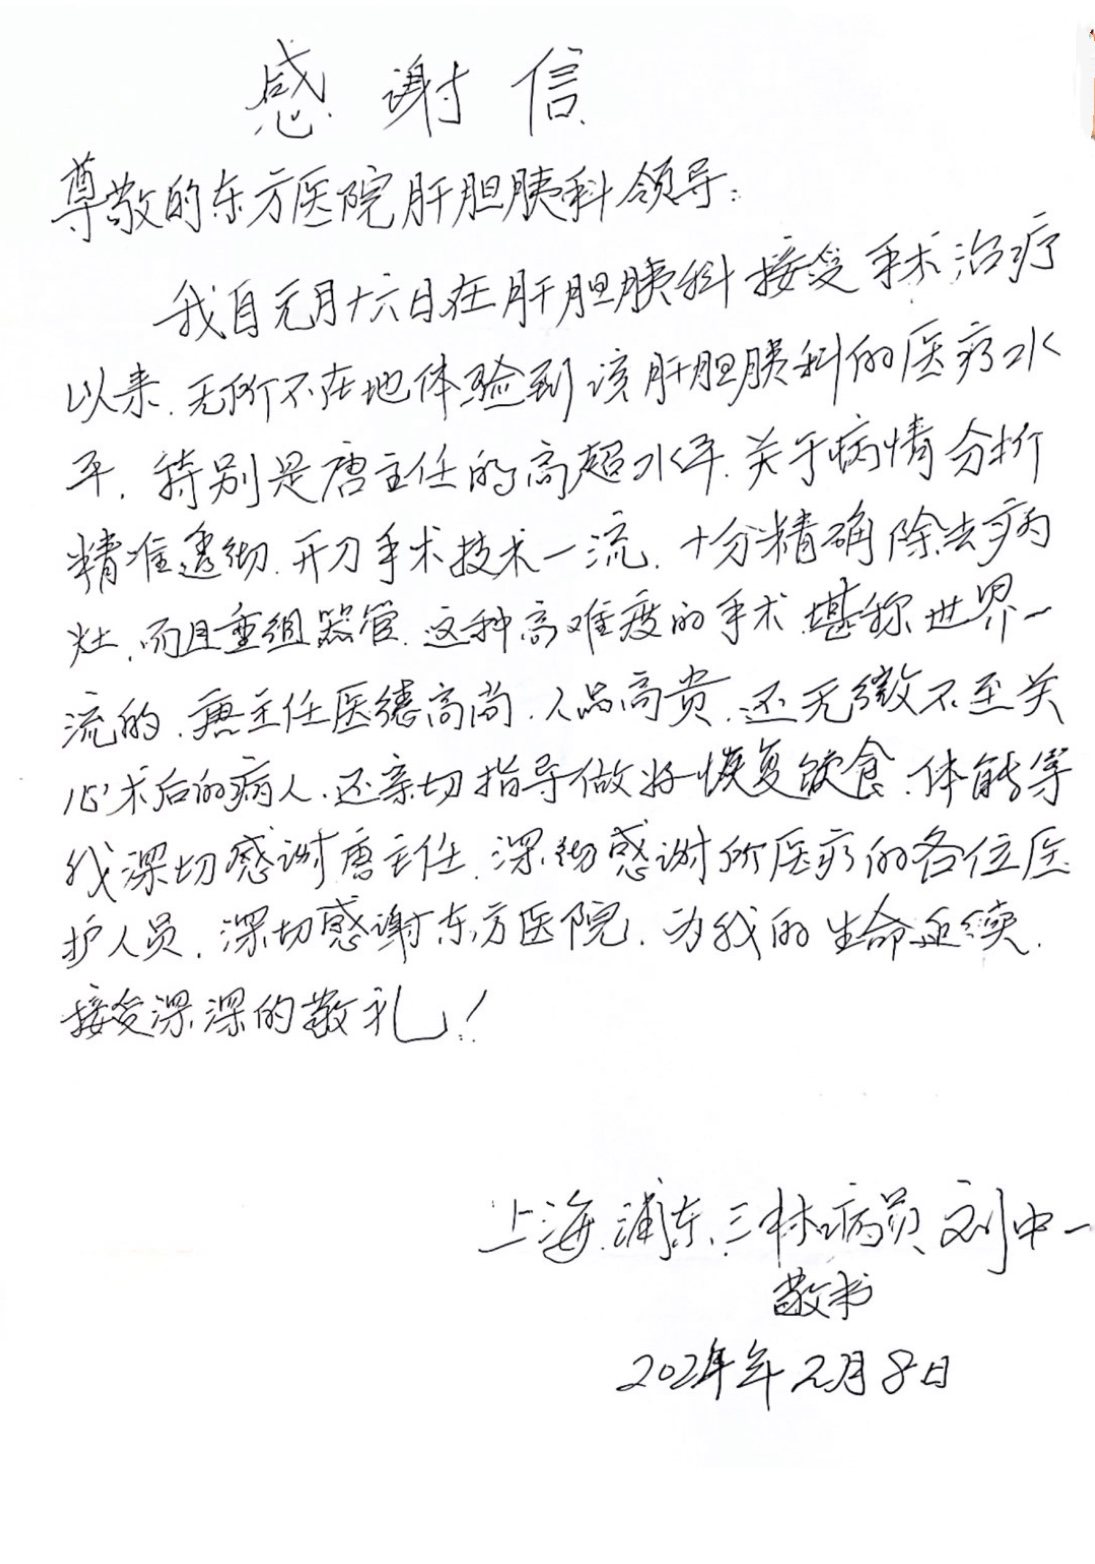 感谢信
尊敬的东方医院肝胆胰科领导:
我自元月十六日在肝胆胰科接受手术治疗
以来.无所不在地体验到该肝胆胰科的医疗水
平.特别是唐主任的高超水平.关于病情分析
精准透彻.开刀手术技术一流.十分精确除去病
灶.而且重组器官.这种高难度的手术堪称世界一
流的.唐主任医德高尚.人品高贵.还无微不至关
心术后的病人.还亲切指导做好恢复饮食.体能等
我深切感谢唐主任.深切感谢所医疗的各位医
护人员.深切感谢东方医院.为我的生命延续.
接受深深的敬礼!
上海.浦东.三林病员刘中一
敬书
年2月8日